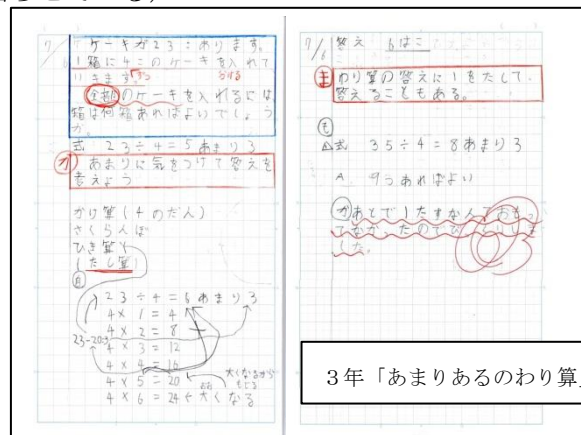 7/6
ケーキが23こあります。
1箱に4このケーキを入れて
いきます。ずつ わける
全部のケーキを入れるには
箱は何箱あればよいでしょう
か。
式 23÷4=5あまり3
か あまりに気をつけて答えを
考えよう
かけ算(4のだん)
さくらんぼ
ひき算
(たし算)
自
23÷4=6あまり3
4×1=4
4×2=8
4×3=12
4×4=16
4×5=20
4×6=24←大きくなる
23-20=3
大きくなるから
もどる
7/6 答え 6はこ
ま わり算の答えに1をたして、
答えることもある。
も
式 35÷4=8あまり3
A 9つあればよい
か あとで1たすなんておもっ
てなかったのでびっくりしま
した。
3年「あまりあるのわり算」